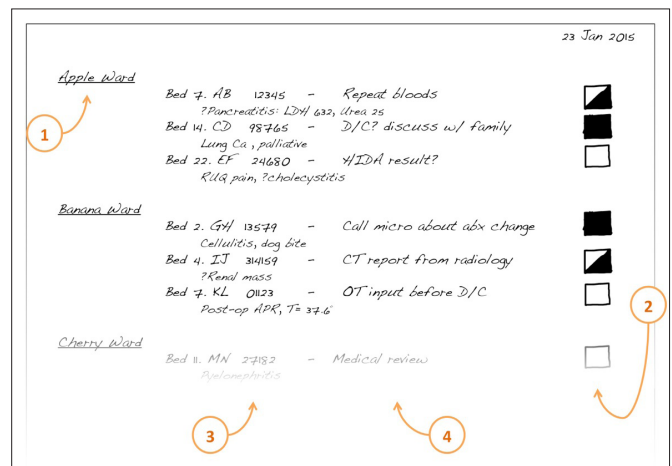 23 Jan 2015
Apple Ward
1
Bed 7. AB 12345 - Repeat bloods
?Pancreatitis: LDH 632, Urea 25
Bed 14. CD 98765 - D/C? discuss w/ family
Lung Ca, palliative
Bed 22. EF 24680 - HIDA result?
RUQ pain, ?cholecystitis
Banana Ward
Bed 2. GH 13579 - Call micro about abx change
Cellulitis, dog bite
Bed 4. IJ 314159 - CT report from radiology
?Renal mass
Bed 7. KL 01123 - OT input before D/C
Post-op APR, T= 37.6°
2
Cherry Ward
Bed 11. MN 27182 - Medical review
Pyelonephritis
3
4